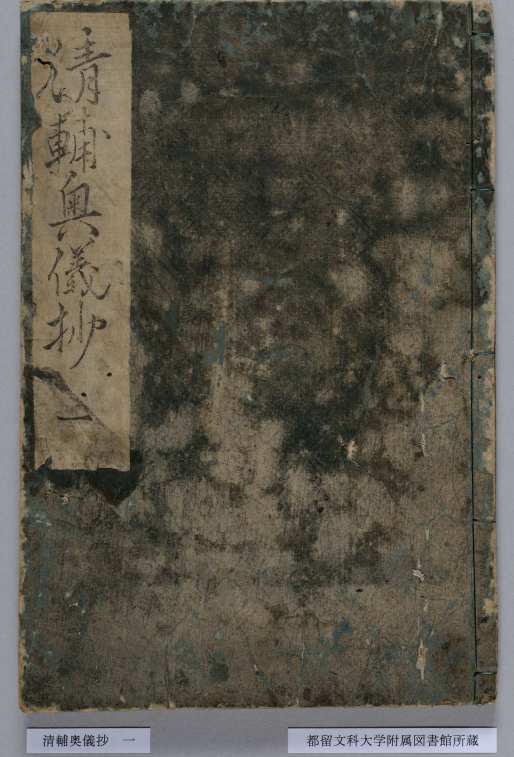 清輔奥儀抄 一
清輔奥儀抄 一
都留文科大学附属図書館所蔵